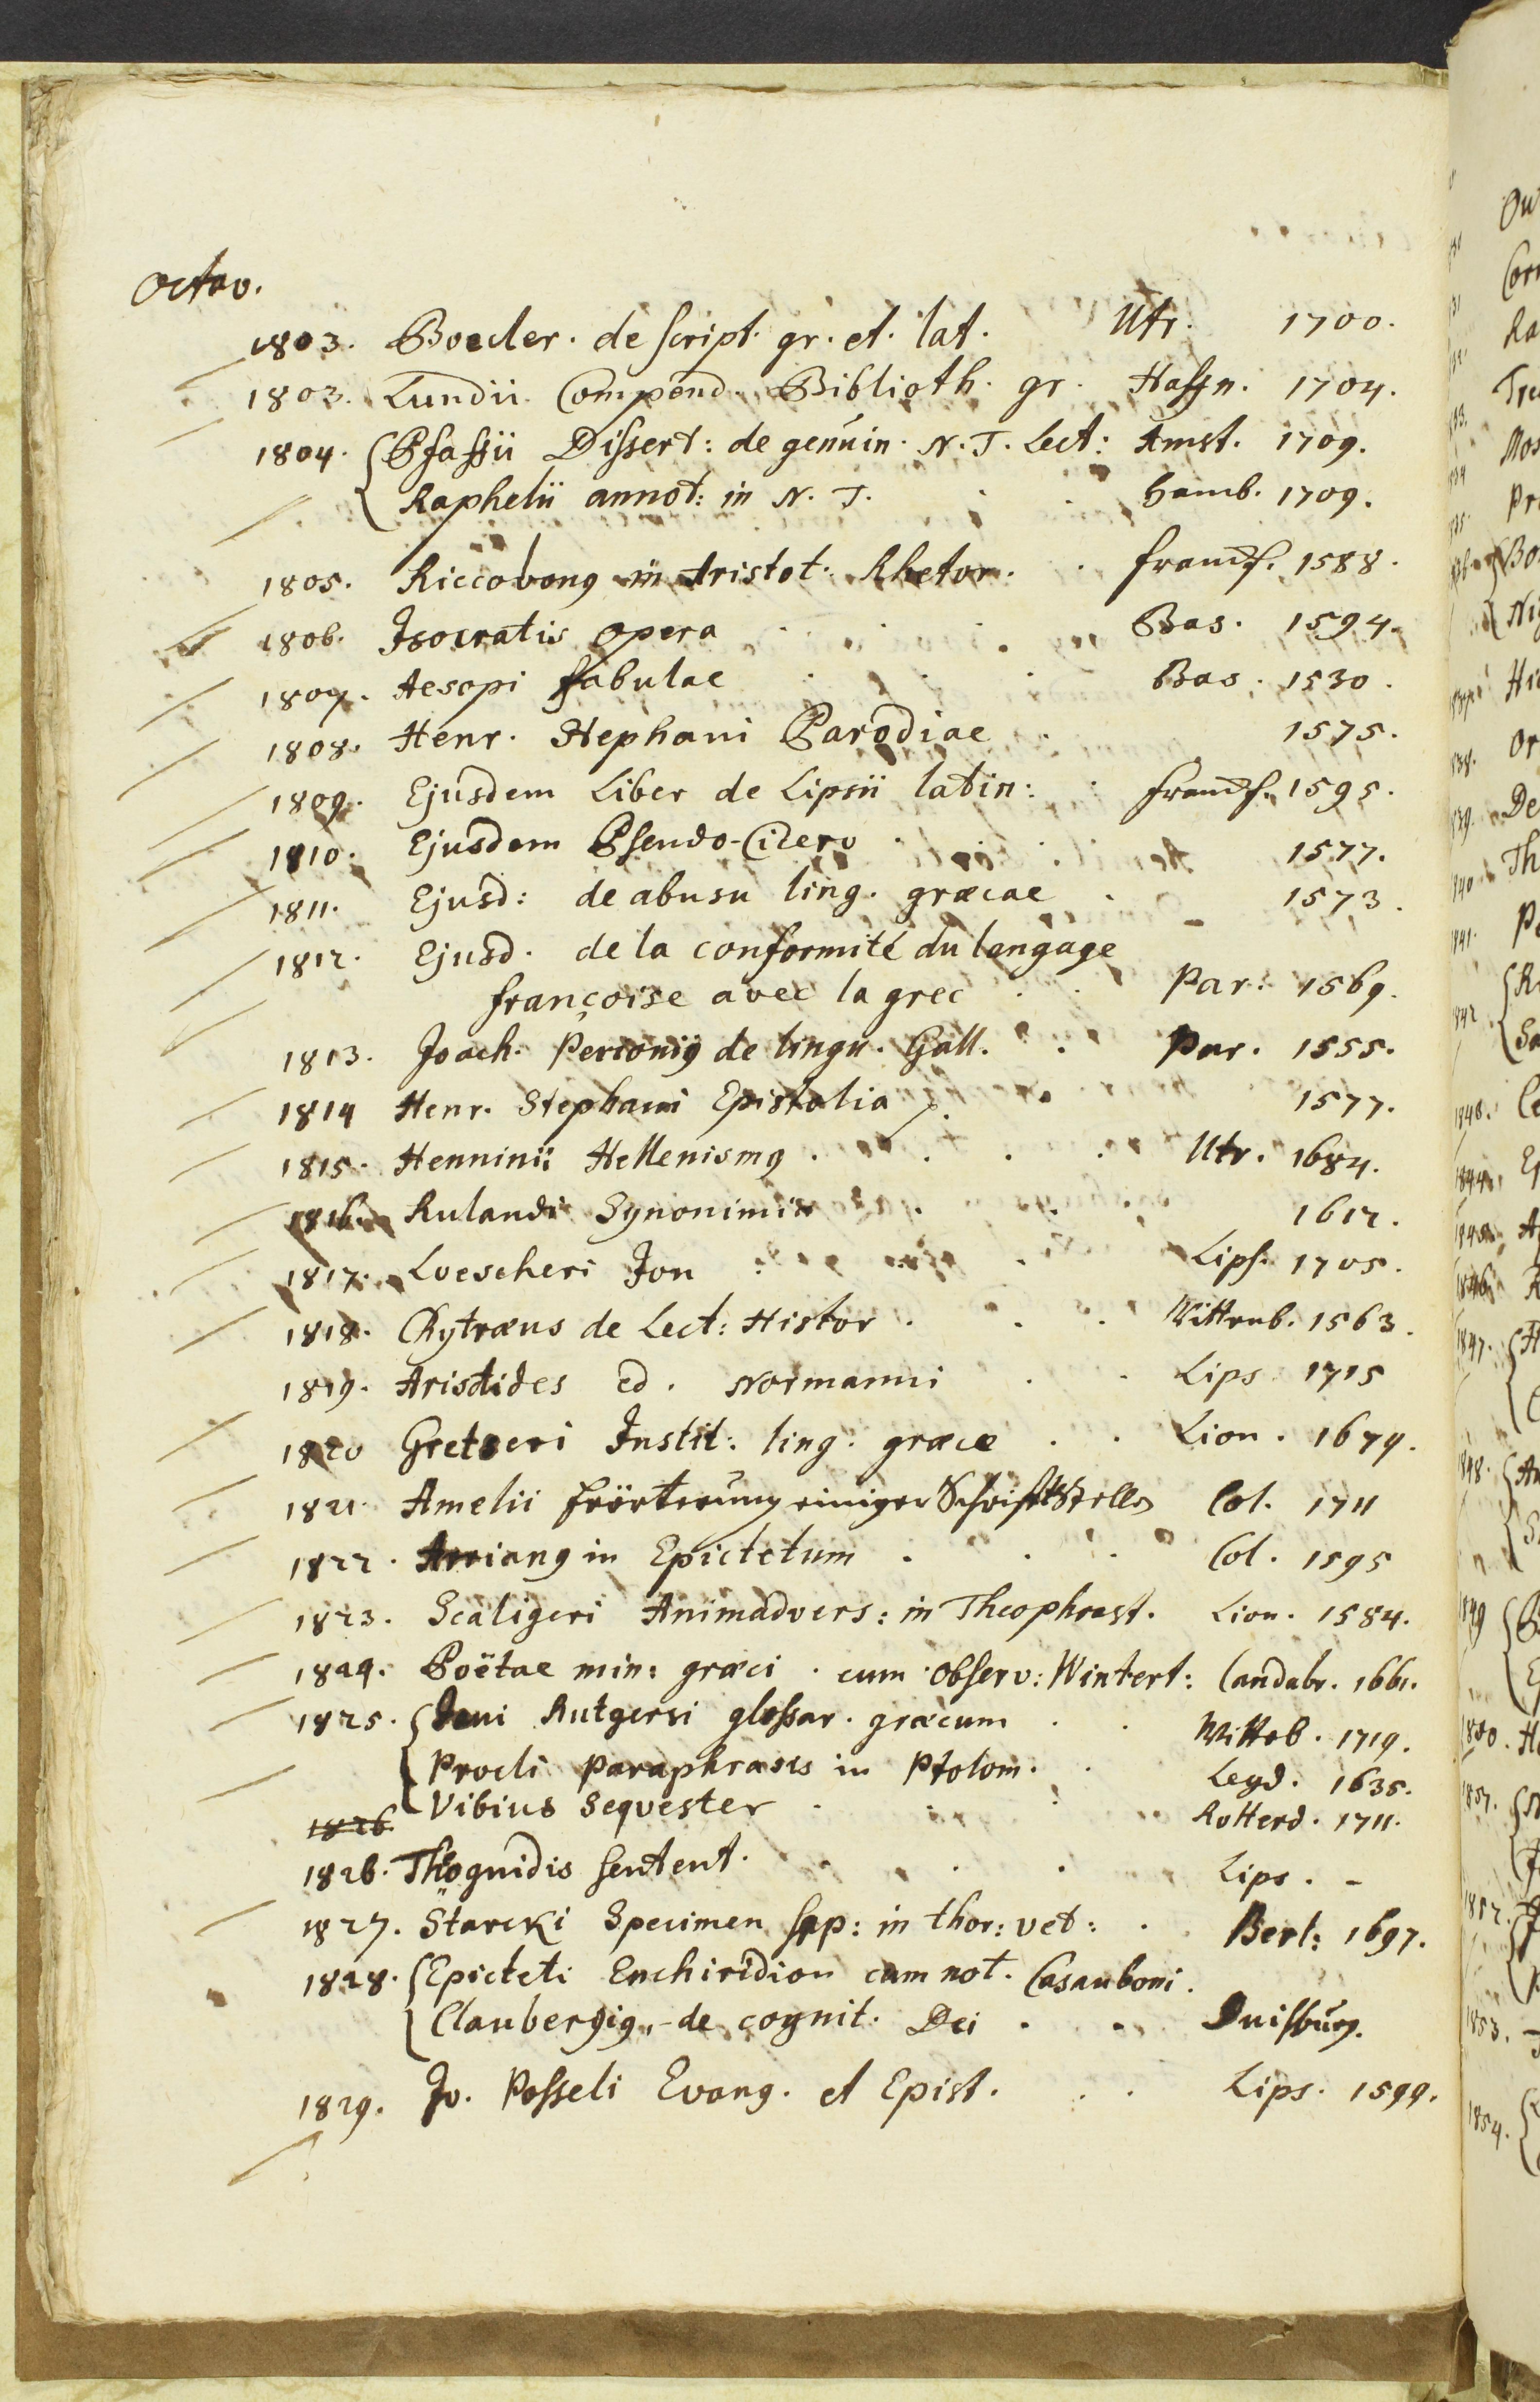 Octav.
1803. Boecler. de script. gr. et. lat. Utr. 1700.
1803. Lundii Compend. Biblioth. gr. Haffn. 1704.
1804. Pfaffii Dissert: de genuin. N. T. Lect: Amst. 1709.
Raphelii annot: in N. T. Hamb. 1709.
1805. Riccobong in Aristot: Rhetor. francf. 1588.
1806. Isocratis opera Bas. 1594.
1807. Aesopi fabulae Bas. 1530.
1808. Henr. Stephani Parodiae 1575.
1809. Ejusdem Liber de Lipsii latin: francf. 1595.
1810. Ejusdem Pseudo-Cicero 1577.
1811. Ejusd: de abusu ling. græcae 1573.
1812. Ejusd. de la conformité du langage
françoise avec la grec Par: 1569.
1813. Joach. Perioniq de lingu. Gall. Par. 1555.
1814 Henr. Stephani Epistolia 1577.
1815. Henninii Hellenismq Utr. 1684.
1816. Rulandi Synonimia 1612.
1817. Loescheri Jon Lips. 1705.
1818. Chytræus de Lect: Histor. Wittenb. 1563.
1819. Aristides ed. Normanni Lips 1715
1820 Gretseri Instit: ling. græcæ Lion. 1679.
1821. Amelii Erörterung einiger Schrifftstellen Col. 1711
1822. Arrianq in Epictetum Col. 1595
1823. Scaligeri Animadvers: in Theophrast. Lion. 1584.
1824. Poëtae min: græci cum observ: Wintert: Candabr. 1661.
1825. Rutgersi glossar. græcum Witteb. 1719.
Procli Paraphrasis in Ptolom. Leyd. 1635.
1826. Vibius Sequester Rotterd. 1711.
1826. Theognidis sentent. Lips. -
1827. Starcki Specimen sap: in thor: vet: Berl: 1697.
1828. Epicteti Enchiridion cum not. Casauboni.
Claubergiq, de cognit. Dei Duisburg.
1829. Jo. Posseli Evang. et Epist. Lips. 1599.